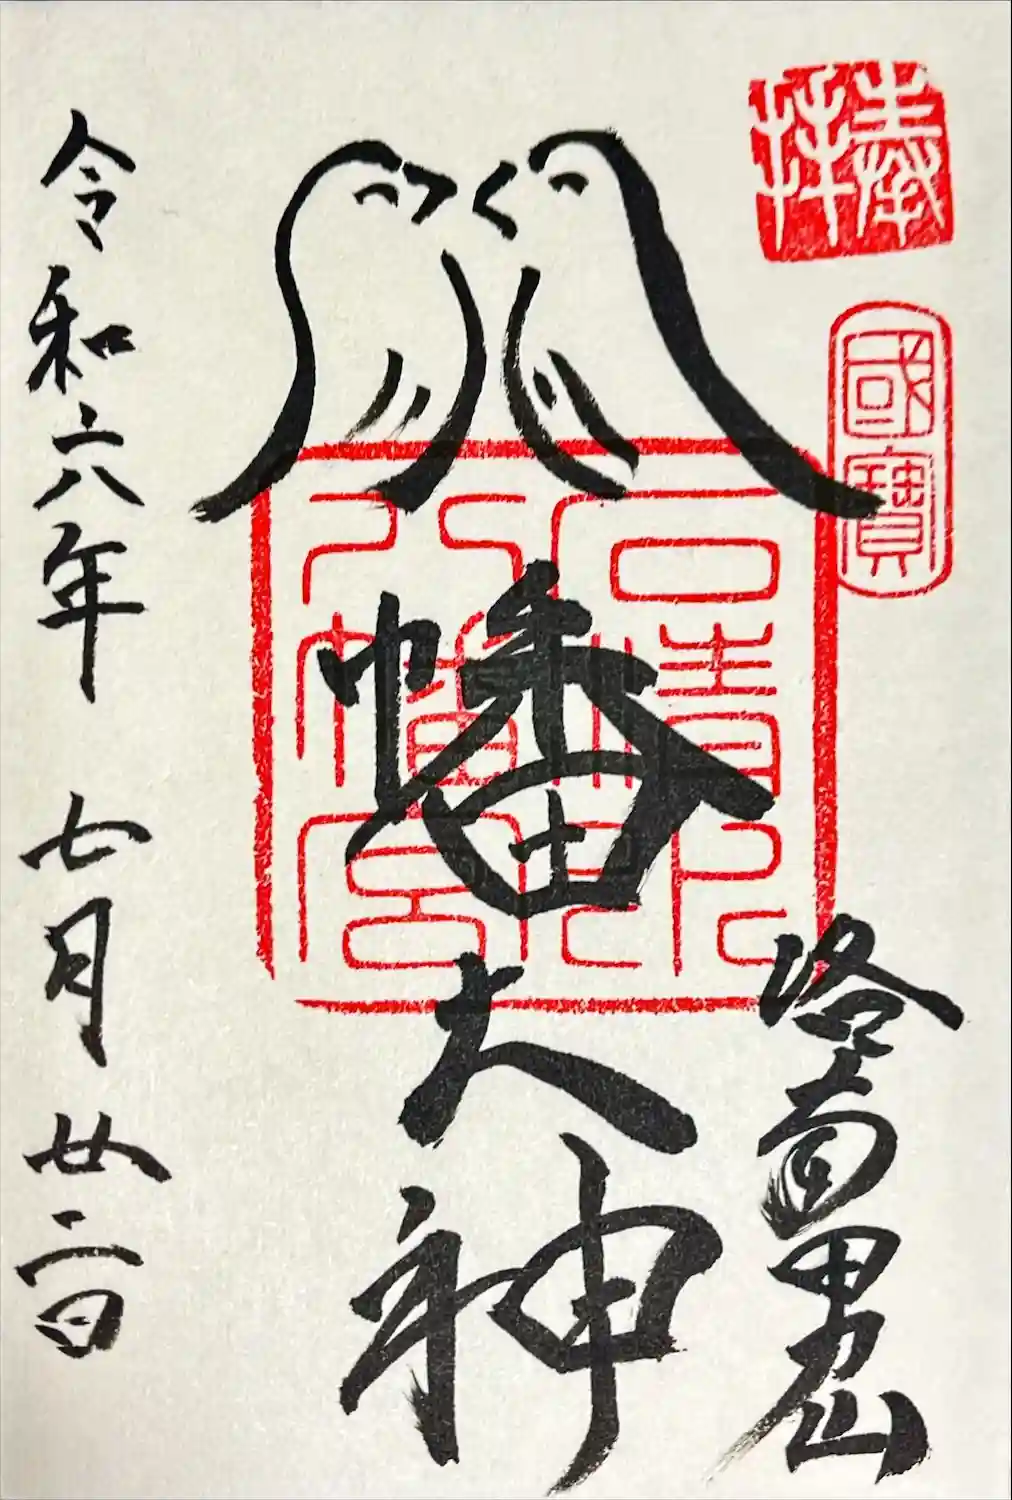 奉拝
國寶
洛南男山
石清水
八幡宮
八幡大神
令和六年 七月廿二日